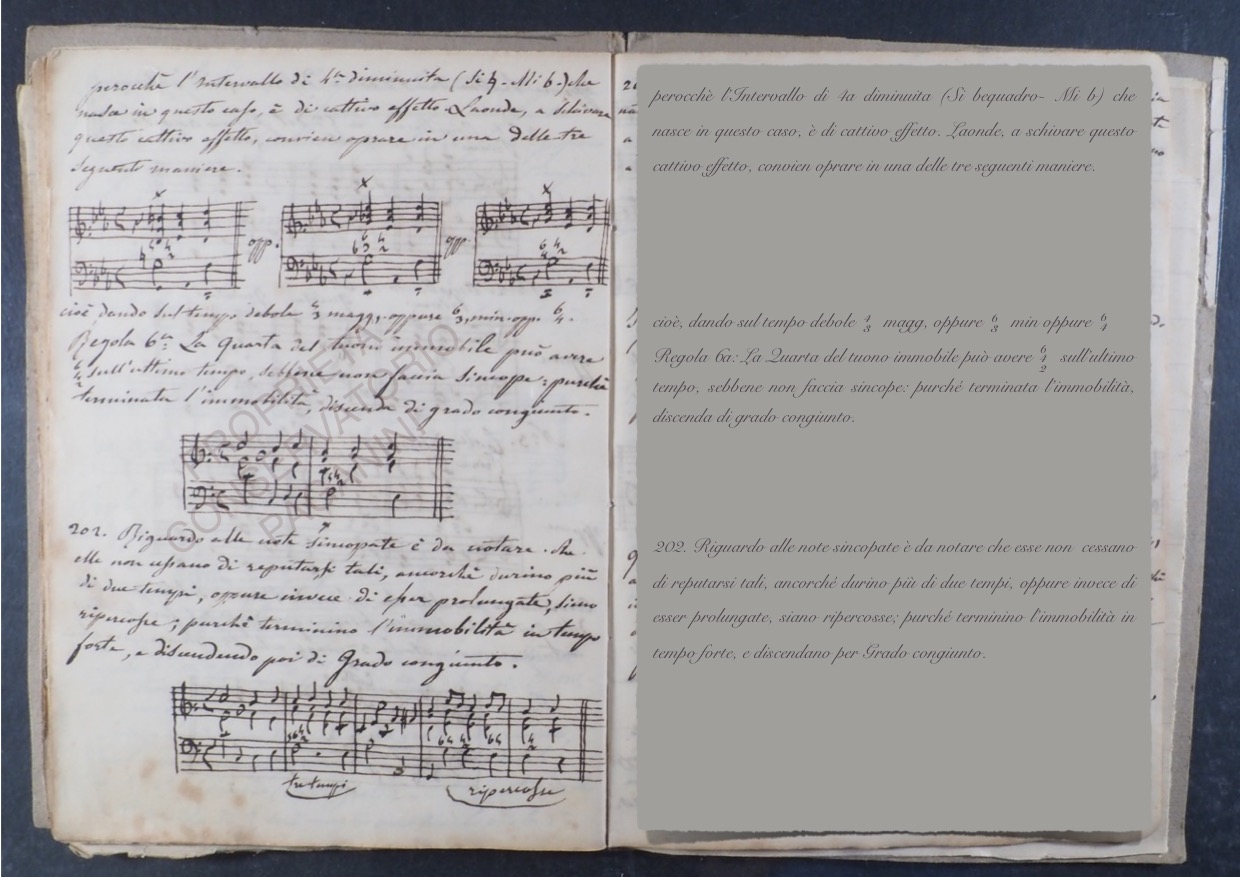 perocchè l'Intervallo di 4ta diminuita (Si ♮. Mi b.) che
nasce in questo caso, è di cattivo effetto. Laonde, a schivare
questo cattivo effetto, convien oprare in una delle tre
seguenti maniere.
opp. opp.
cioè dando sul tempo debole 4/3 magg. oppure 6/3 min. opp. 6/4.
Regola 6a: La Quarta del tuono immobile può avere
6/4/2 sull'ultimo tempo, sebbene non faccia sincope; purchè
terminata l'immobilità, discenda di grado congiunto.
PROPRIETÀ
CONSERVATORIO
PAGANINI
202. Riguardo alle note sincopate è da notare che
elle non cessano di reputarsi tali, ancorchè durino più
di due tempi, oppure invece di esser prolungate, siano
ripercosse; purchè terminino l'immobilità in tempo
forte, e discendendo poi di Grado congiunto.
tre tempi
ripercosse
perocchè l'Intervallo di 4a diminuita (Si bequadro- Mi b) che
nasce in questo caso, è di cattivo effetto. Laonde, a schivare questo
cattivo effetto, convien oprare in una delle tre seguenti maniere.
cioè, dando sul tempo debole 4/3 magg, oppure 6/3 min oppure 6/4
Regola 6a: La Quarta del tuono immobile può avere 6/4/2 sull'ultimo
tempo, sebbene non faccia sincope: purché terminata l'immobilità,
discenda di grado congiunto.
202. Riguardo alle note sincopate è da notare che esse non cessano
di reputarsi tali, ancorché durino più di due tempi, oppure invece di
esser prolungate, siano ripercosse; purché terminino l'immobilità in
tempo forte, e discendano per Grado congiunto.